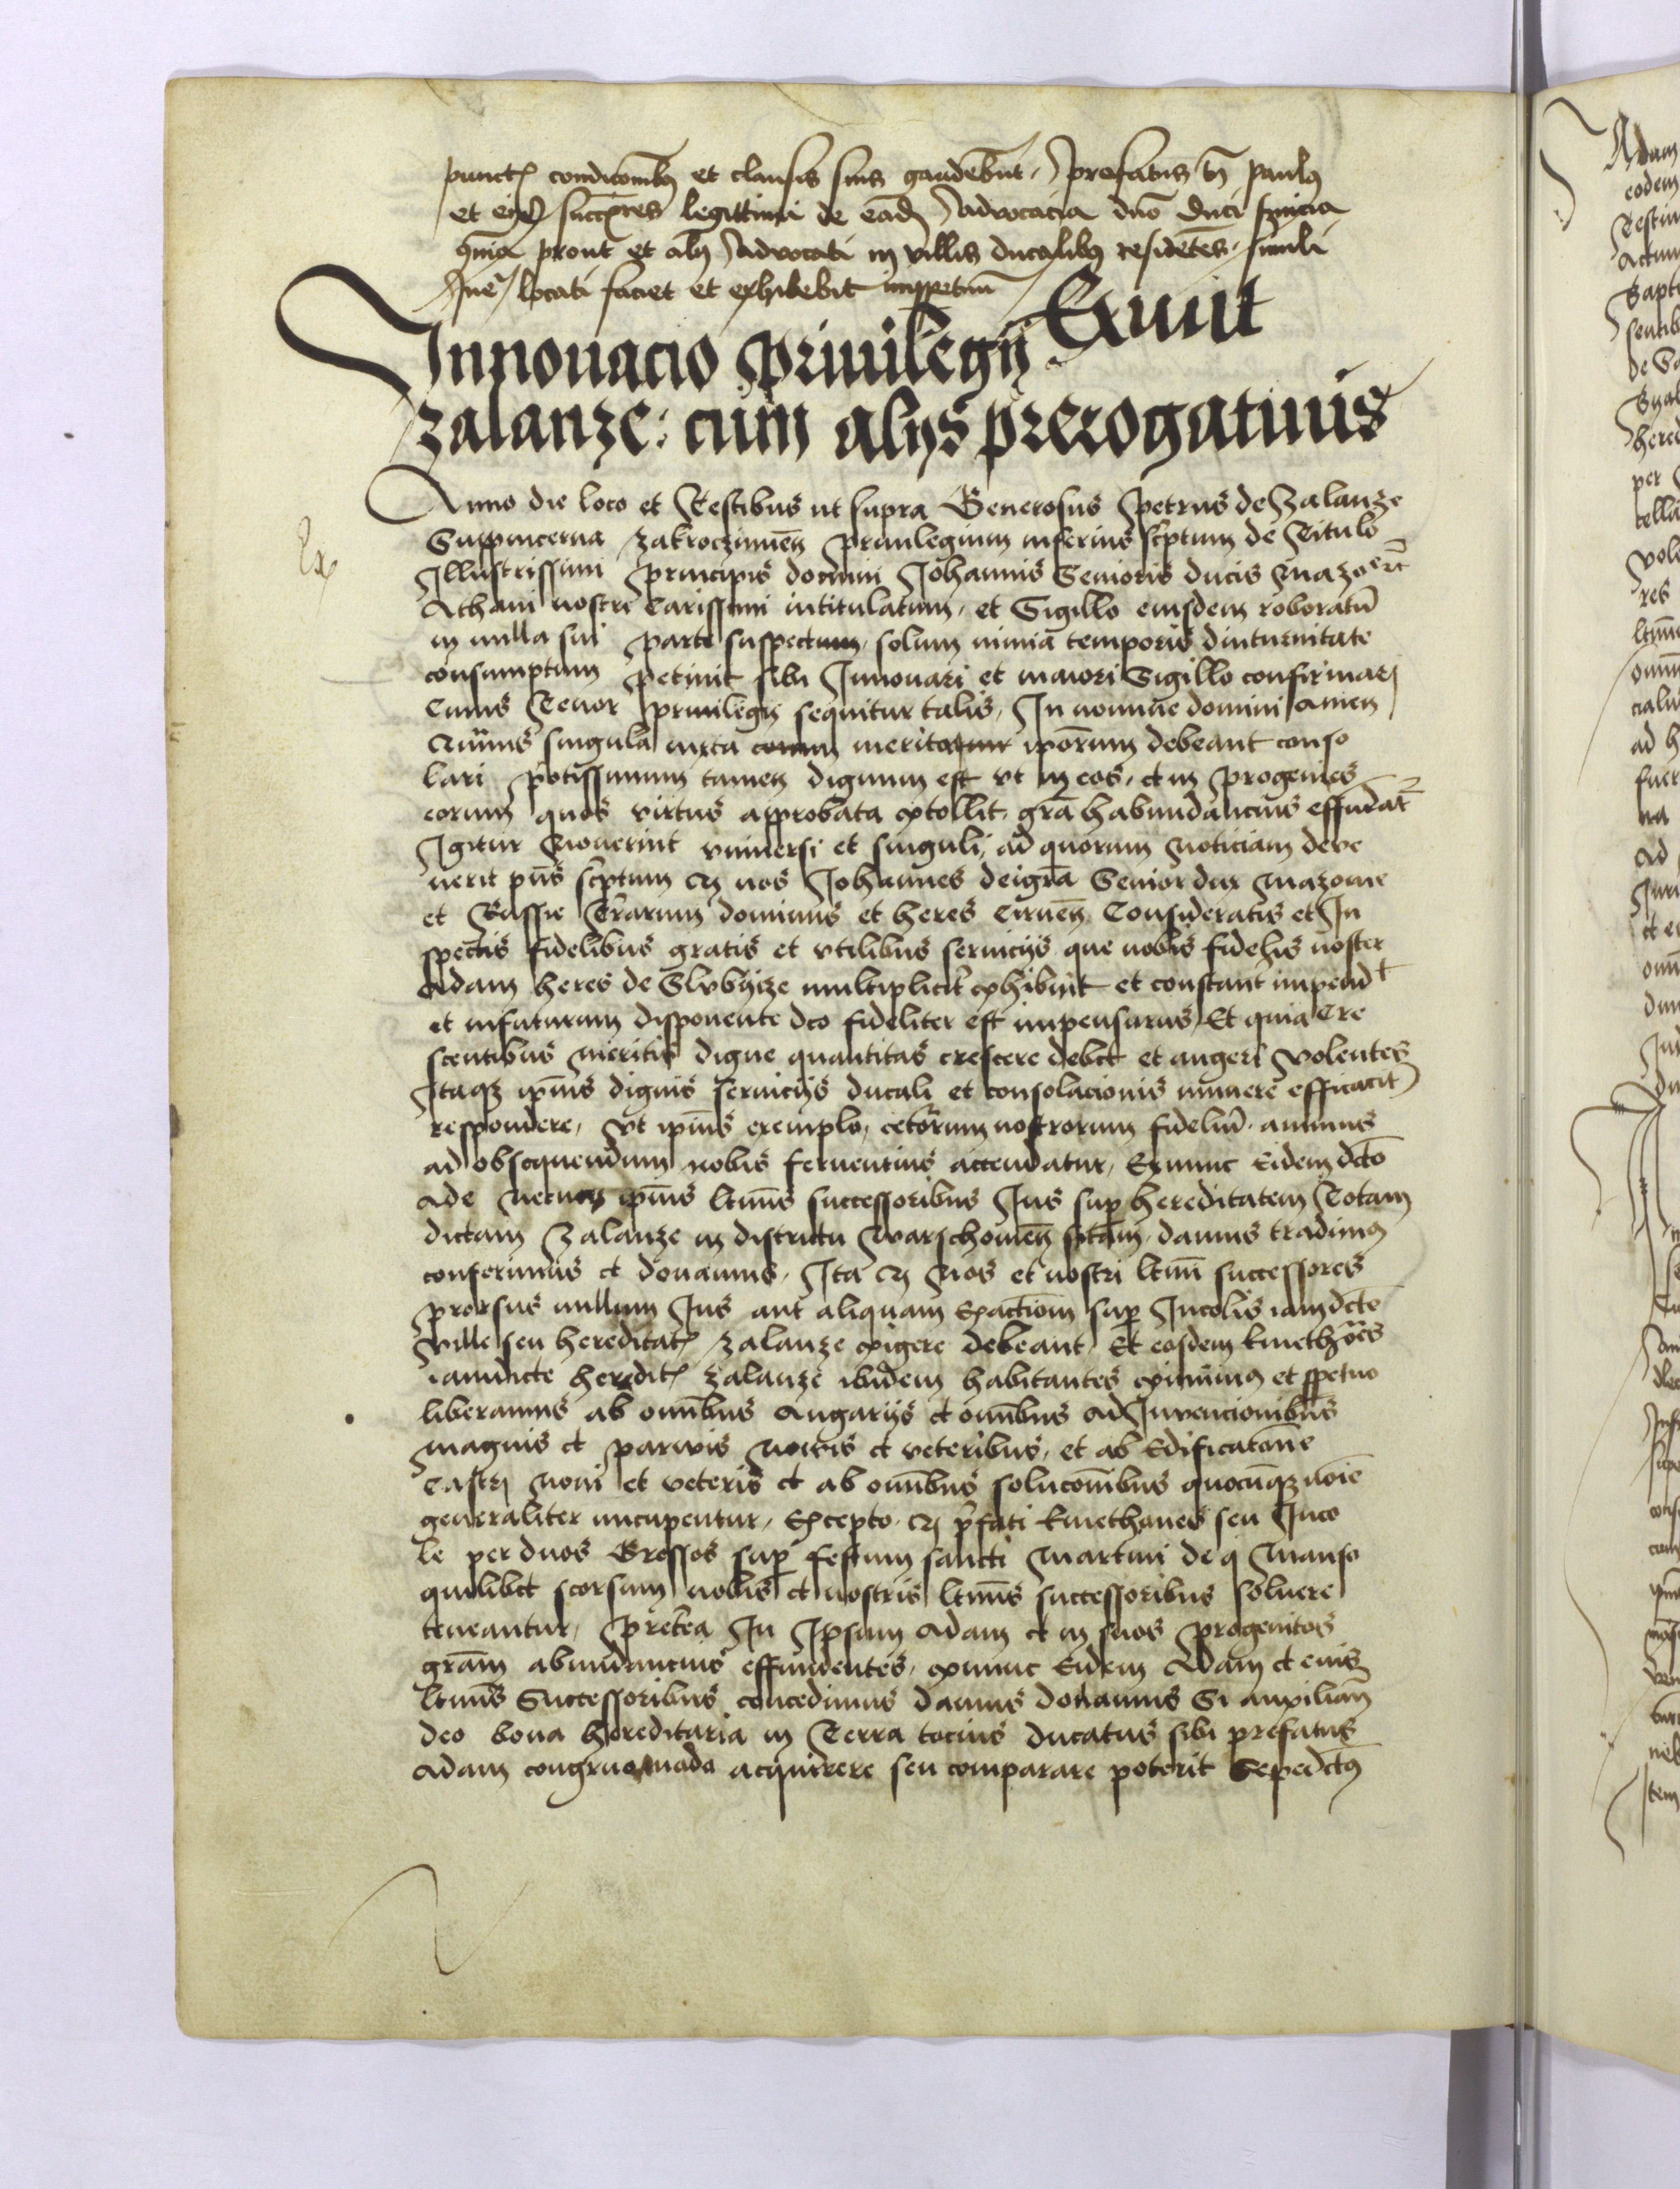 punctis condicionibus et clausis suis gaudebunt. Prefatus vero Paulus
et eius successores legittimi de eadem Advocacia domino duci servicia
omnia prout et alij Advocati in villis ducalibus residentes, simili
Jure locati faciet et exhibebit imperpetuum
Innouacio Priuilegij Exiuit
Zalanze: cum alijs prerogatiuis
Anno die loco et Testibus ut supra Generosus Petrus de Zalanze
Ex
Suppincerna Zakroczimen Priuilegium inferius scriptum de Titulo
Illustrissimi Principis domini Johannis Senioris ducis Mazouie etc
Athaui nostri Carissimi intitulatum, et Sigillo eiusdem roboratum
in nulla sui parte suspectum, solum nimia temporis diuturnitate
consumptum petiuit sibi Innouari et maiori Sigillo confirmari
Cuius Tenor priuilegij sequitur talis, In nomine domini amen
singula iuxta meritorum ipsorum debeant conso
lari potissimum tamen dignum est vt in eos, et in progenies
eorum quos virtus approbata extollit, gracia habundancius effundatur
Igitur Nouerint vniuersi et singuli, ad quorum Noticiam deve
nerit presens scriptum quod nos Johannes dei gracia Senior dux Mazouie
et Russie Terrarum dominus et heres Cirnen Consideratis et In
spectis fidelibus gratis et vtilibus seruicijs que nobis fidelis noster
Adam heres de Slvbycze multipliciter exhibuit et constanter impendit
et infuturum disponente deo fideliter est impensurus, Et quia Cre
scentibus meritis digne quantitas crescere debet et augeri Volentes
Itaque ipsius dignis seruicijs ducali et consolacionis munere efficaciter
respondere, Vt ipsius exemplo, ceterorum nostrorum fidelium animus
ad obsequendum nobis feruentius accendatur, Exnunc Eidem dicto
Ade necnon ipsius legittimis successoribus Jus super hereditatem Totam
dictam Zalanze in districtu Warschouien sitam, damus tradimus
conferimus et donamus, Ita quod Nos et nostri legittimi successores
prorsus nullum Jus aut aliquam Exactionem super Incolis iamdicte
Ville seu hereditatis Zalanze exigere debeant, Et eosdem kmethones
iamdicte hereditatis Zalanze ibidem habitantes eximimus et perpetuo
liberamus ab omnibus Angarijs et omnibus AdJnvencionibus
magnis et parwis nowis et veteribus, et ab Edificacione
Castri Noui et veteris et ab omnibus solucionibus quocumque nomine
generaliter nuncupentur, Excepto quod prefati kmethones seu Inco
le per duos Grossos super festum sancti Martini de quolibet Manso
quilibet seorsum nobis et nostris legittimis successoribus soluere
teneantur, Preterea In Ipsum Adam et in suos progenitos
graciam abundancius effundentes, exnunc Eidem Adam et eius
legittimis Successoribus concedimus damus donamus Si auxiliante
deo bona hereditaria in Terra tocius ducatus sibi prefatus
Adam congruo modo acquirere seu comparare poterit Sepedictus